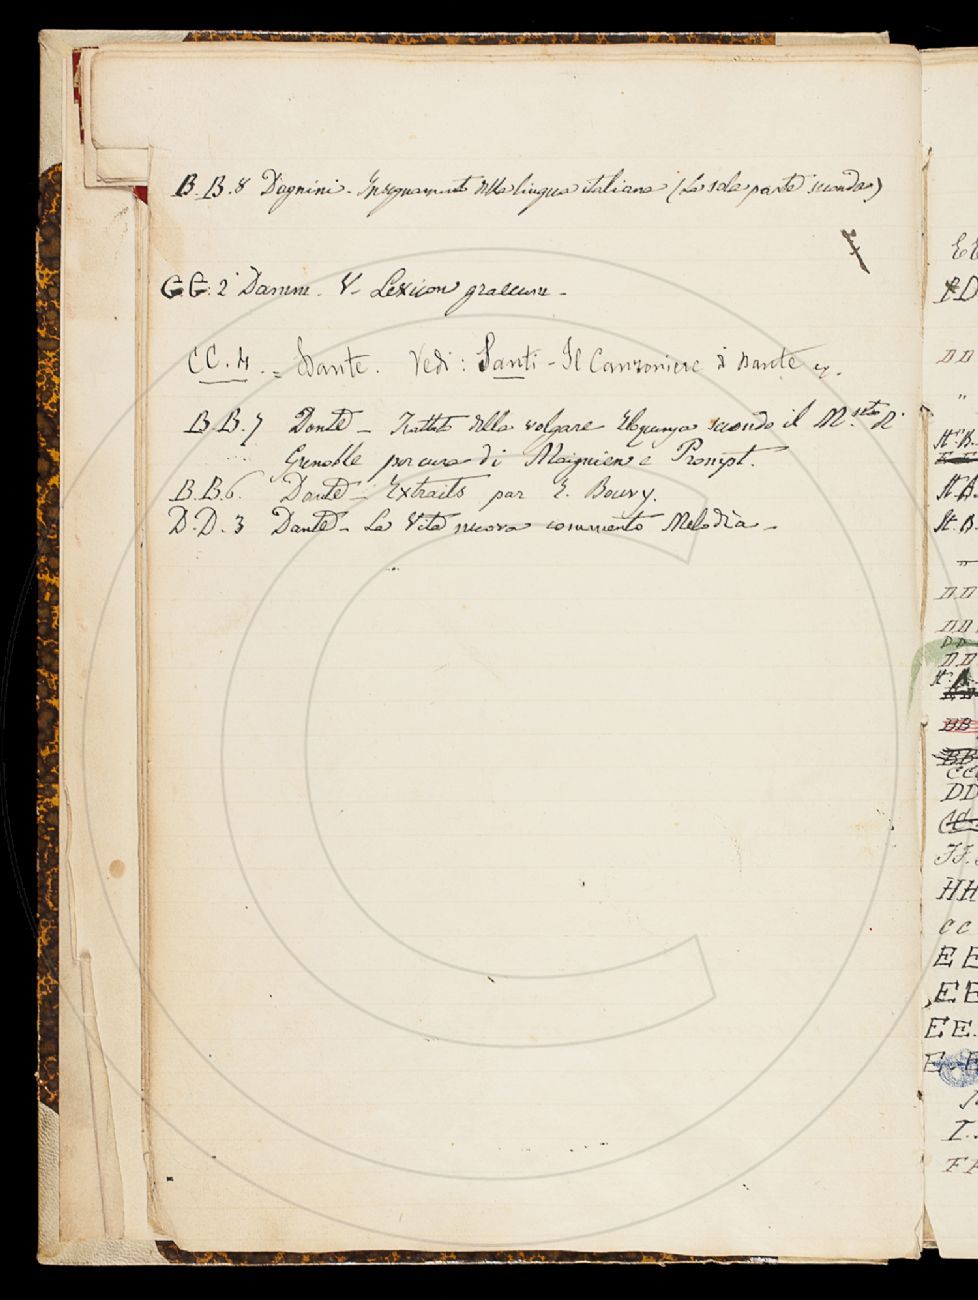 B.B.8 Dagnini - Insegnamento della lingua italiana (La sola parte seconda)
GG. 2 Damm. V. Lexicon graecum -
CC.4. = Dante. Vedi: Santi - Il Canzoniere di Dante
B.B.7 Dante - Trattato della volgare Eloquenza secondo il M.scto di
Grenoble per cura di Maignien e Prompt.
B.B.6. Dante - Extraits par E. Bouvy.
D.D.3 Dante - La Vita nuova commento Melodia -
DD
HH
CC
EE
EE
EE.